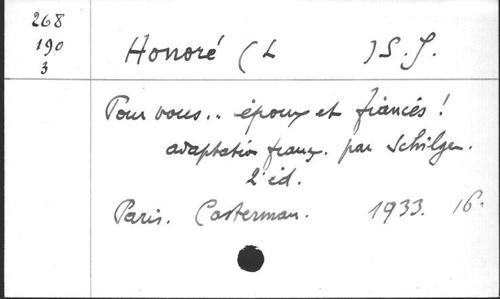 268
190
3
Honoré (L )S.J.
Pour vous.. époux et fiancés !
adaptation franç. par Schilgen.
2e éd.
Paris. Casterman. 1933. 16°